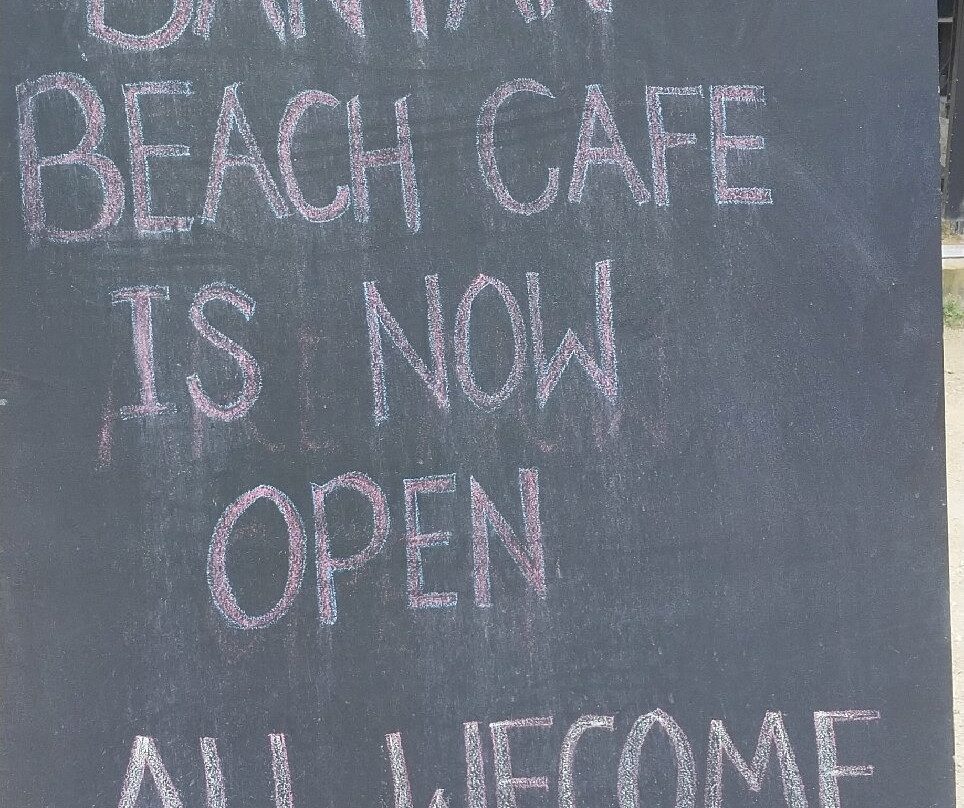 BEACH CAFE
IS NOW
OPEN
ALL WECOME